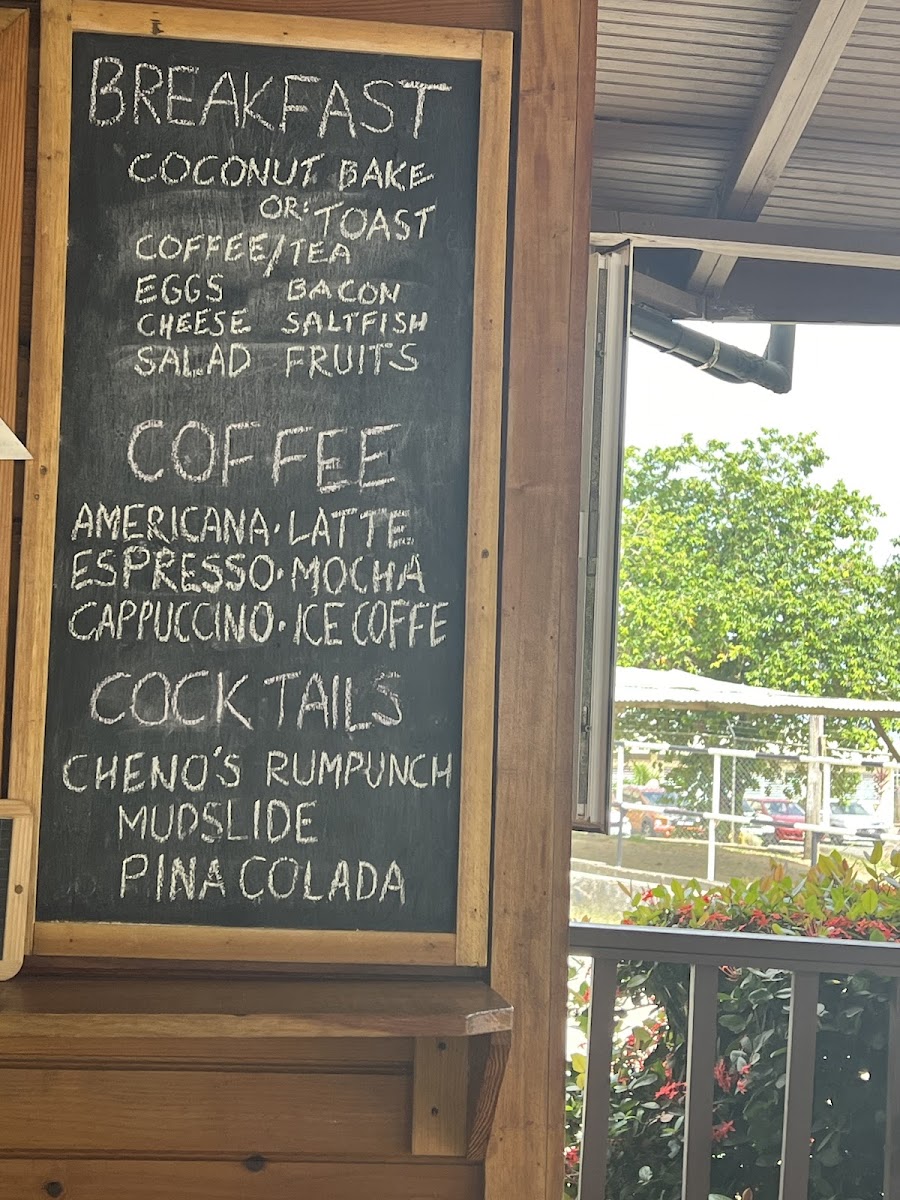 BREAKFAST
COCONUT BAKE
OR: TOAST
COFFEE/TEA
EGGS BACON
CHEESE SALTFISH
SALAD FRUITS
COFFEE
AMERICANA · LATTE
ESPRESSO · MOCHA
CAPPUCCINO · ICE COFFE
COCKTAILS
CHENO'S RUMPUNCH
MUDSLIDE
PINA COLADA